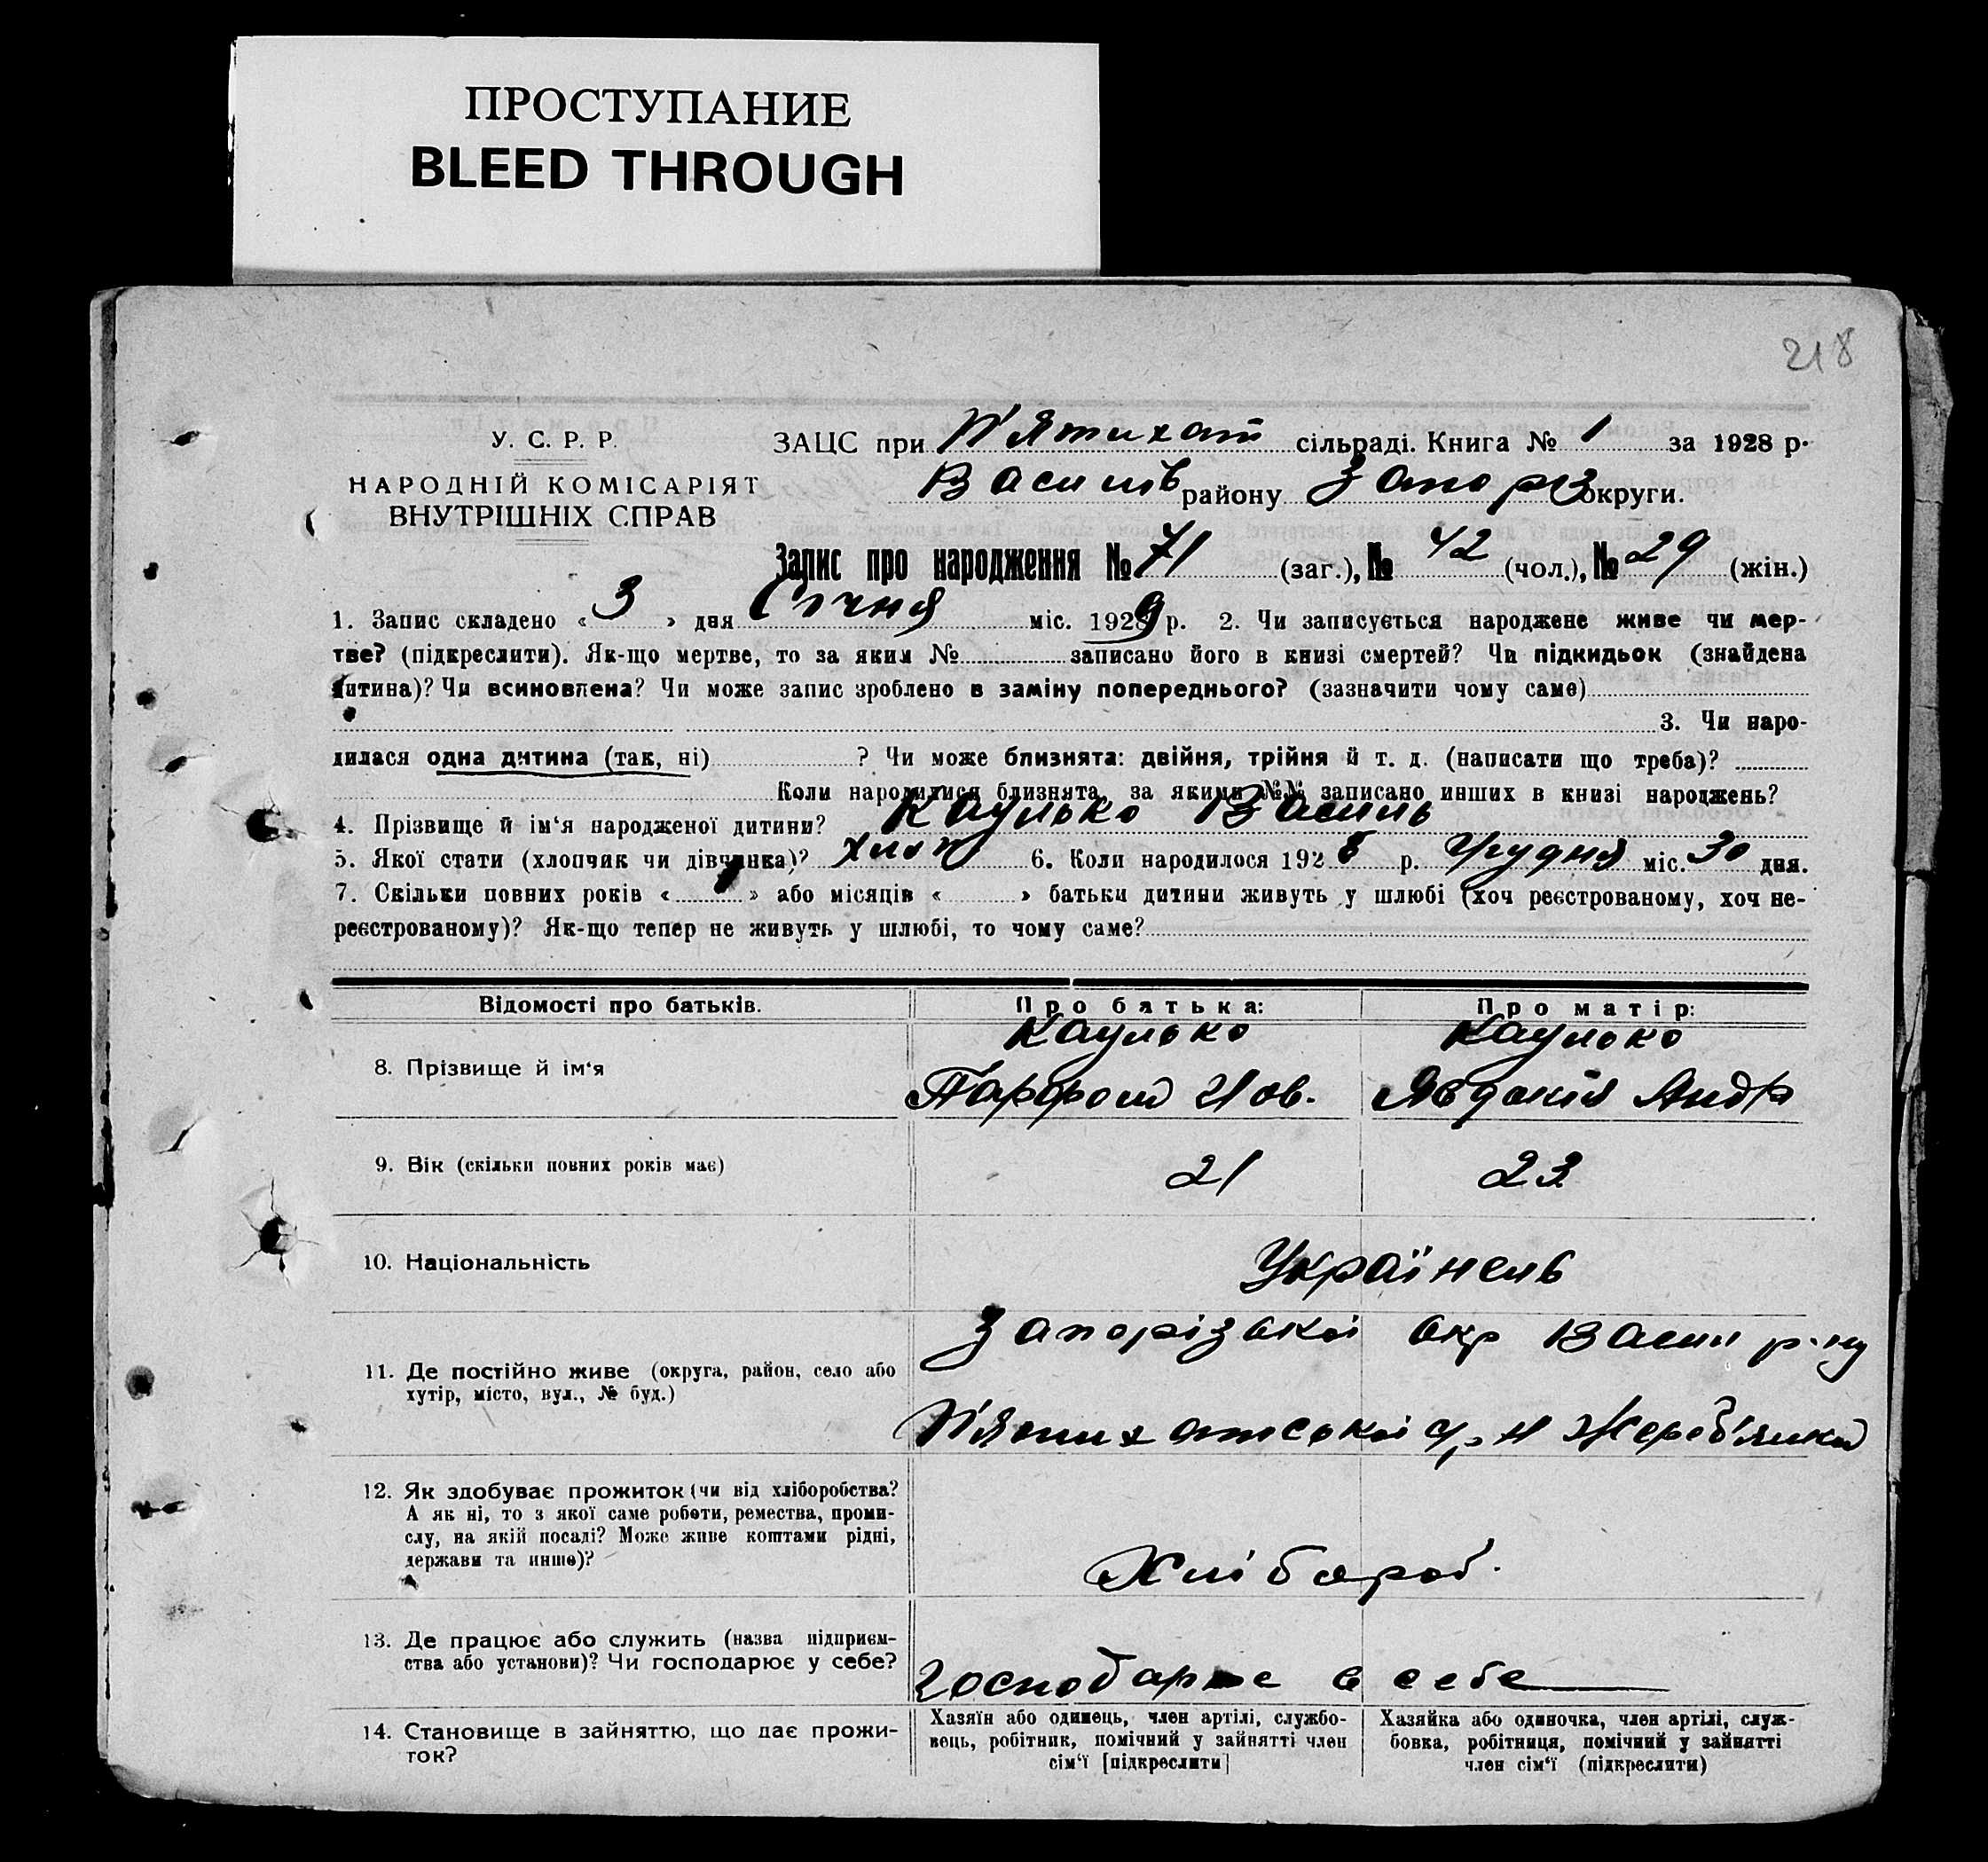 ПРОСТУПАНИЕ
BLEED THROUGH
218
У. С. Р. Р.
НАРОДНІЙ КОМІСАРІЯТ
ВНУТРІШНІХ СПРАВ
ЗАЦС при П'ятихат сільраді. Книга № 1 за 1928 р.
Василів району Запоріз округи.
Запис про народження № 71 (заг.), № 42 (чол.), № 29 (жін.)
1. Запис складено « 3 » дня Січня міс. 1929 р. 2. Чи записується народжене живе чи мер-
тве? (підкреслити). Як-що мертве, то за яким № записано його в книзі смертей? Чи підкидьок (знайдена
дитина)? Чи всиновлена? Чи може запис зроблено в заміну попереднього? (зазначити чому саме)
3. Чи наро-
дилася одна дитина (так, ні) ? Чи може близнята: двійня, трійня й т. д. (написати що треба)?
Коли народилися близнята, за якими №№ записано инших в книзі народжень?
4. Прізвище й ім‘я народженої дитини? Каулько Василь
5. Якої стати (хлопчик чи дівчинка)? хлоп 6. Коли народилося 1928 р. Грудня міс. 30 дня.
7. Скільки повних років « » або місяців « » батьки дитини живуть у шлюбі (хоч реєстрованому, хоч не-
реєстрованому)? Як-що тепер не живуть у шлюбі, то чому саме?
Відомості про батьків. Про батька: Про матір:
Каулько Каулько
8. Прізвище й ім‘я
Парфом Иов. Явдокія Андр
9. Вік (скільки повних років має) 21 23
10. Національність Українець
Запорізької окр Васил р-ну
11. Де постійно живе (округа, район, село або
хутір, місто, вул., № буд.)
П'ятихатської
12. Як здобуває прожиток (чи від хліборобства?
А як ні, то з якої саме роботи, ремества, проми-
слу, на якій посаді? Може живе коштами рідні,
держави та инше)?
Хлібороб.
13. Де працює або служить (назва підприєм-
ства або установи)? Чи господарює у себе?
Господарює в себе
14. Становище в зайняттю, що дає прожи-
ток?
Хазяїн або одинець, член артілі, службо-
вець, робітник, помічний у зайнятті член
сім‘ї [підкреслити]
Хазяйка або одиночка, член артілі, служ-
бовка, робітниця, помічний у зайнятті
член сім‘ї (підкреслити)